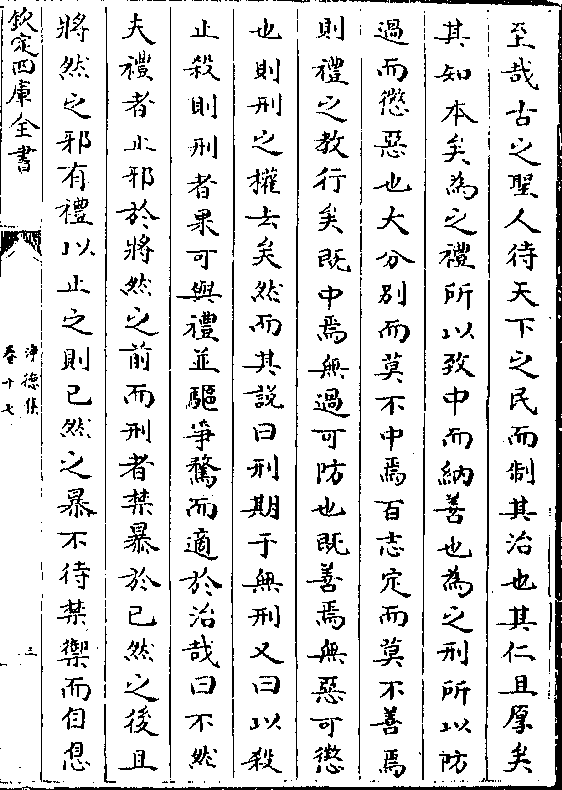 至哉古之聖人待天下之民而制其治也其仁且厚矣
其知本矣為之禮所以致中而納善也為之刑所以防
過而懲惡也大分别而莫不中焉百志定而莫不善焉
則禮之教行矣既中焉無過可防也既善焉無惡可懲
也則刑之權去矣然而其說曰刑期于無刑又曰以殺
止殺則刑者果可與禮並驅爭騖而適於治哉曰不然
夫禮者止邪於將然之前而刑者禁暴於已然之後且
將然之邪有禮以止之則已然之暴不待禁禦而自息
欽定四庫全書
淨德集
卷十七
三